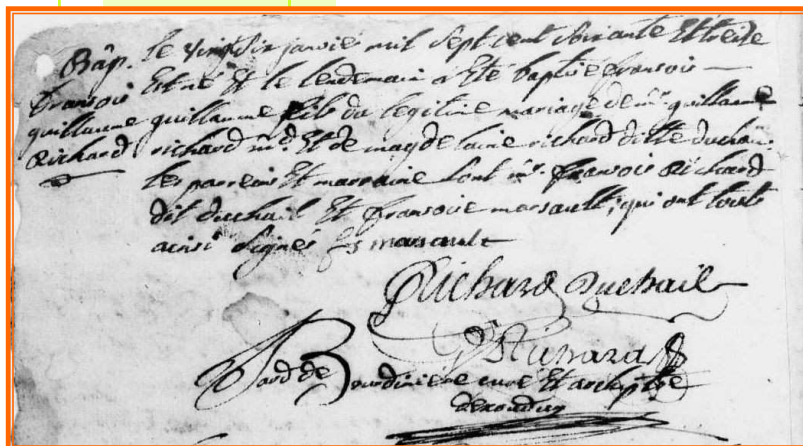 Bâp. le vingt six janvié mil sept cent soixante et treize
fransois est né et le lendemain a été baptisé fransois
guillaume guillaume fils du legitime mariage de mr guillaume
Richard richard md. et de magdelaine richard ditte duchail.
les parrein et marraine sont mr. fransois Richard
dit duchail et fransoise marsault, qui ont touts
ainsi signés fs marsault
Richard Duchail
Richard
Bourdiniere curé et archiptre